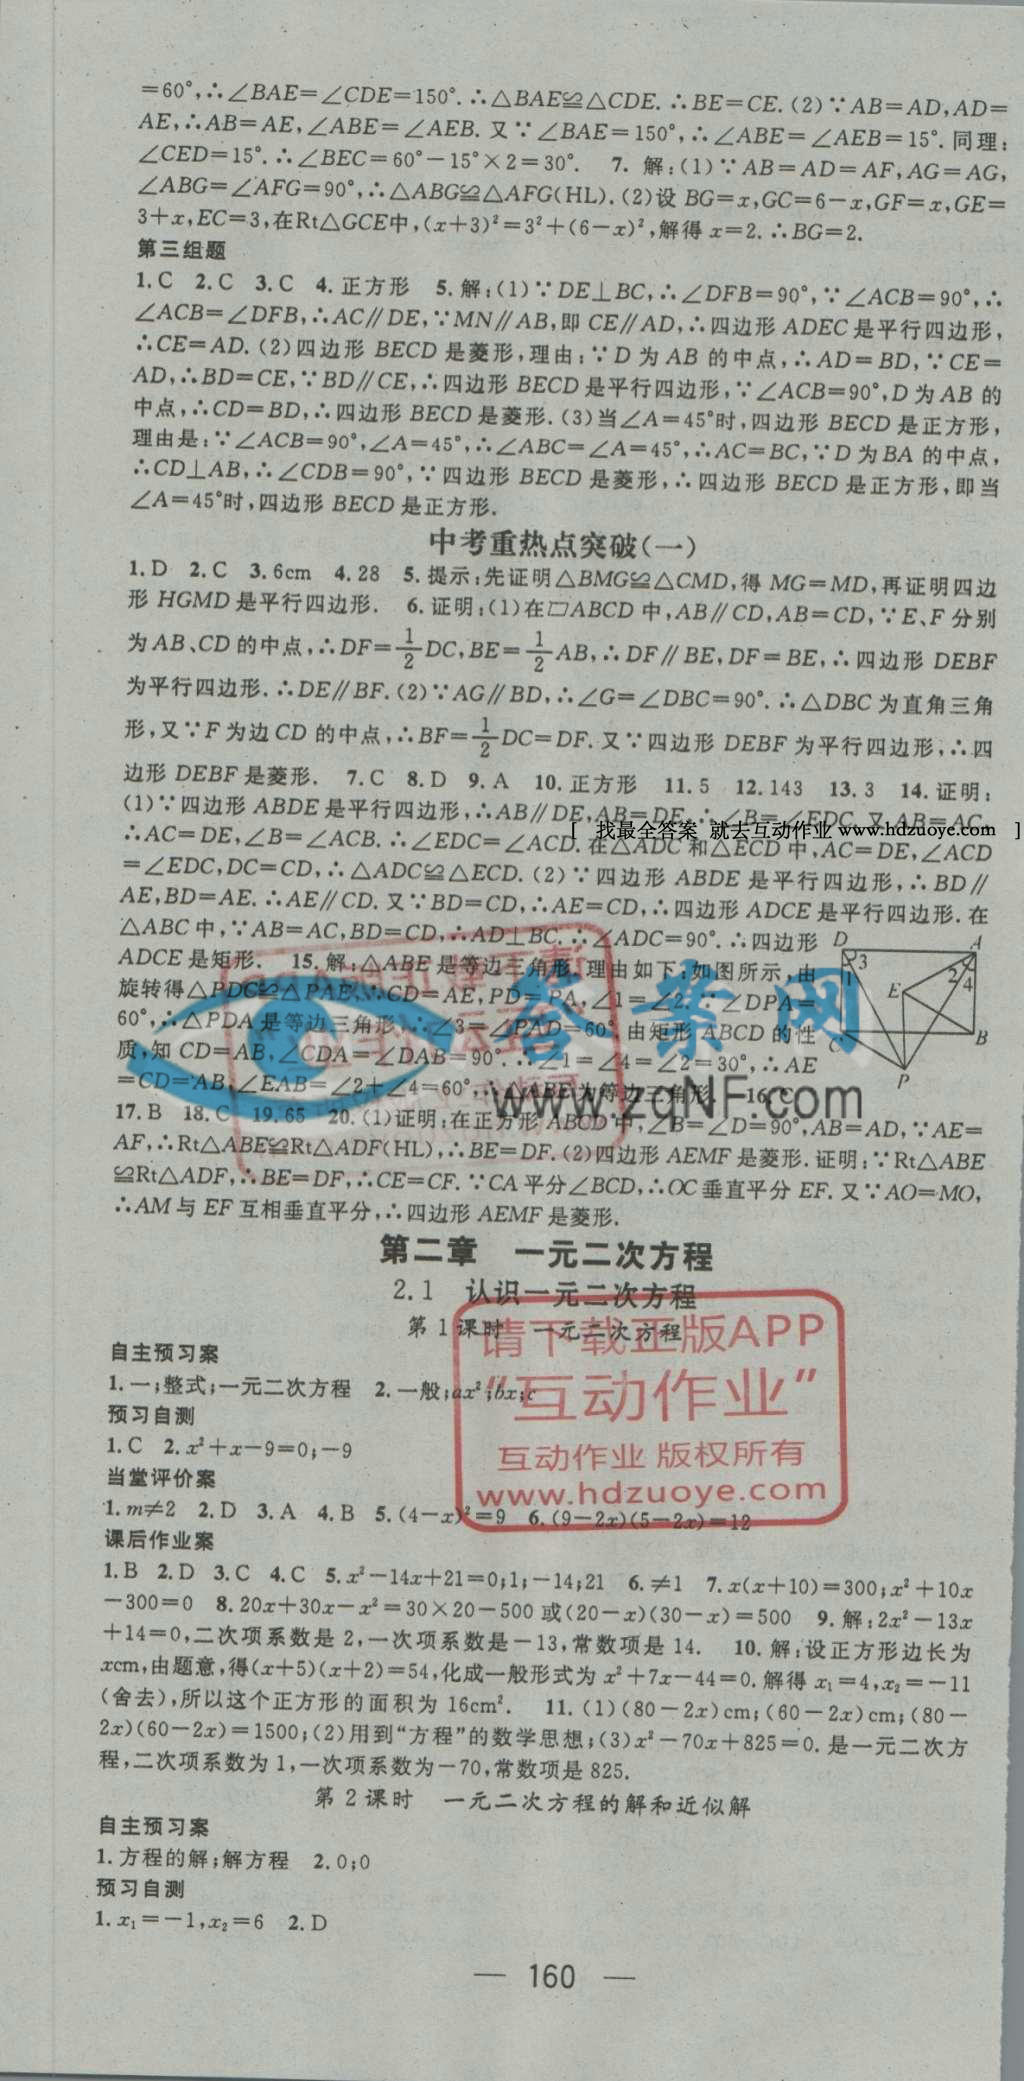 =60°,∴∠BAE=∠CDE=150°.∴△BAE≌△CDE.∴BE=CE.(2)∵AB=AD,AD=
AE,∴AB=AE,∠ABE=∠AEB.又∵∠BAE=150°,∴∠ABE=∠AEB=15°.同理:
∠CED=15°.∴∠BEC=60°-15°×2=30°. 7.解:(1)∵AB=AD=AF,AG=AG,
∠ABG=∠AFG=90°,∴△ABG≌△AFG(HL).(2)设BG=x,GC=6-x,GF=x,GE=
3+x,EC=3,在Rt△GCE中,(x+3)²=3²+(6-x)²,解得x=2.∴BG=2.
第三组题
1.C 2.C 3.C 4.正方形 5.解:(1)∵DE⊥BC,∴∠DFB=90°,∵∠ACB=90°,∴
∠ACB=∠DFB,∴AC∥DE,∵MN∥AB,即CE∥AD,∴四边形ADEC是平行四边形,
∴CE=AD.(2)四边形BECD是菱形,理由:∵D为AB的中点,∴AD=BD,∵CE=
AD,∴BD=CE,∵BD∥CE,∴四边形BECD是平行四边形,∵∠ACB=90°,D为AB的
中点,∴CD=BD,∴四边形BECD是菱形.(3)当∠A=45°时,四边形BECD是正方形,
理由是:∵∠ACB=90°,∠A=45°,∴∠ABC=∠A=45°,∴AC=BC,∵D为BA的中点,
∴CD⊥AB,∴∠CDB=90°,∵四边形BECD是菱形,∴四边形BECD是正方形,即当
∠A=45°时,四边形BECD是正方形.
中考重热点突破(一)
1.D 2.C 3.6cm 4.28 5.提示:先证明△BMG≌△CMD,得MG=MD,再证明四边
形HGMD是平行四边形. 6.证明:(1)在▱ABCD中,AB∥CD,AB=CD,∵E、F分别
为AB、CD的中点,∴DF=1/2DC,BE=1/2AB,∴DF∥BE,DF=BE,∴四边形DEBF
为平行四边形.∴DE∥BF.(2)∵AG∥BD,∴∠G=∠DBC=90°.∴△DBC为直角三角
形,又∵F为边CD的中点,∴BF=1/2DC=DF.又∵四边形DEBF为平行四边形,∴四
边形DEBF是菱形. 7.C 8.D 9.A 10.正方形 11.5 12.143 13.3 14.证明:
(1)∵四边形ABDE是平行四边形,∴AB∥DE,AB=DE,∴∠B=∠EDC.又AB=AC,
[ 找最全答案 就去互动作业 www.hdzuoye.com ]
∴AC=DE,∠B=∠ACB.∴∠EDC=∠ACD.在△ADC和△ECD中,AC=DE,∠ACD
=∠EDC,DC=CD,∴△ADC≌△ECD.(2)∵四边形ABDE是平行四边形,∴BD∥
AE,BD=AE.∴AE∥CD.又∵BD=CD,∴AE=CD,∴四边形ADCE是平行四边形.在
△ABC中,∵AB=AC,BD=CD,∴AD⊥BC.∴∠ADC=90°.∴四边形
ADCE是矩形. 15.解:△ABE是等边三角形.理由如下:如图所示,由
旋转得△PDC≌△PAE,∴CD=AE,PD=PA,∠1=∠2.∵∠DPA=
60°,∴△PDA是等边三角形,∴∠3=∠PAD=60°.由矩形ABCD的性
质,知CD=AB,∠CDA=∠DAB=90°.∴∠1=∠4=∠2=30°,∴AE
=CD=AB,∠EAB=∠2+∠4=60°,∴△ABE为等边三角形. 16.C
D A 3 1 2 4 E C B P
答案网
www.zqNF.com
17.B 18.C 19.65 20.(1)证明:在正方形ABCD中,∠B=∠D=90°,AB=AD,∵AE=
AF,∴Rt△ABE≌Rt△ADF(HL),∴BE=DF.(2)四边形AEMF是菱形.证明:∵Rt△ABE
≌Rt△ADF,∴BE=DF,∴CE=CF.∵CA平分∠BCD,∴OC垂直平分EF.又∵AO=MO,
∴AM与EF互相垂直平分,∴四边形AEMF是菱形.
第二章 一元二次方程
2.1 认识一元二次方程
第1课时 一元二次方程
自主预习案
1.一;整式;一元二次方程 2.一般;ax²;bx;c
预习自测
1.C 2.x²+x-9=0;-9
当堂评价案
1.m≠2 2.D 3.A 4.B 5.(4-x)²=9 6.(9-2x)(5-2x)=12
请下载正版APP
“互动作业”
互动作业 版权所有
www.hdzuoye.com
课后作业案
1.B 2.D 3.C 4.C 5.x²-14x+21=0;1;-14;21 6.≠1 7.x(x+10)=300;x²+10x
-300=0 8.20x+30x-x²=30×20-500或(20-x)(30-x)=500 9.解:2x²-13x
+14=0,二次项系数是2,一次项系数是-13,常数项是14. 10.解:设正方形边长为
xcm,由题意,得(x+5)(x+2)=54,化成一般形式为x²+7x-44=0.解得x₁=4,x₂=-11
(舍去),所以这个正方形的面积为16cm². 11.(1)(80-2x)cm;(60-2x)cm;(80-
2x)(60-2x)=1500;(2)用到“方程”的数学思想;(3)x²-70x+825=0.是一元二次方
程,二次项系数为1,一次项系数为-70,常数项是825.
第2课时 一元二次方程的解和近似解
自主预习案
1.方程的解;解方程 2.0;0
预习自测
1.x₁=-1,x₂=6 2.D
— 160 —